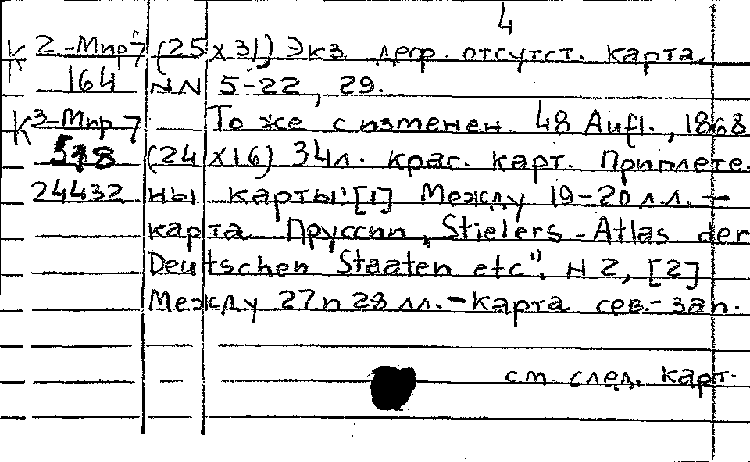 4
К 2-Мир 7 (25 x 31) Экз. деф. отсутст. карта
164 NN 5-22, 29.
К 3-Мир 7 То же с изменен. 48 Aufl., 1868
518 (24 x 16) 34 л. крас. карт. Приплете-
24432 ны карты: [1] Между 19-20 л.л. —
карта Пруссии, Stielers-Atlas der
Deutschen Staaten etc". N 2, [2]
Между 27 и 28 лл. — карта сев.-зап.
см. след. карт.